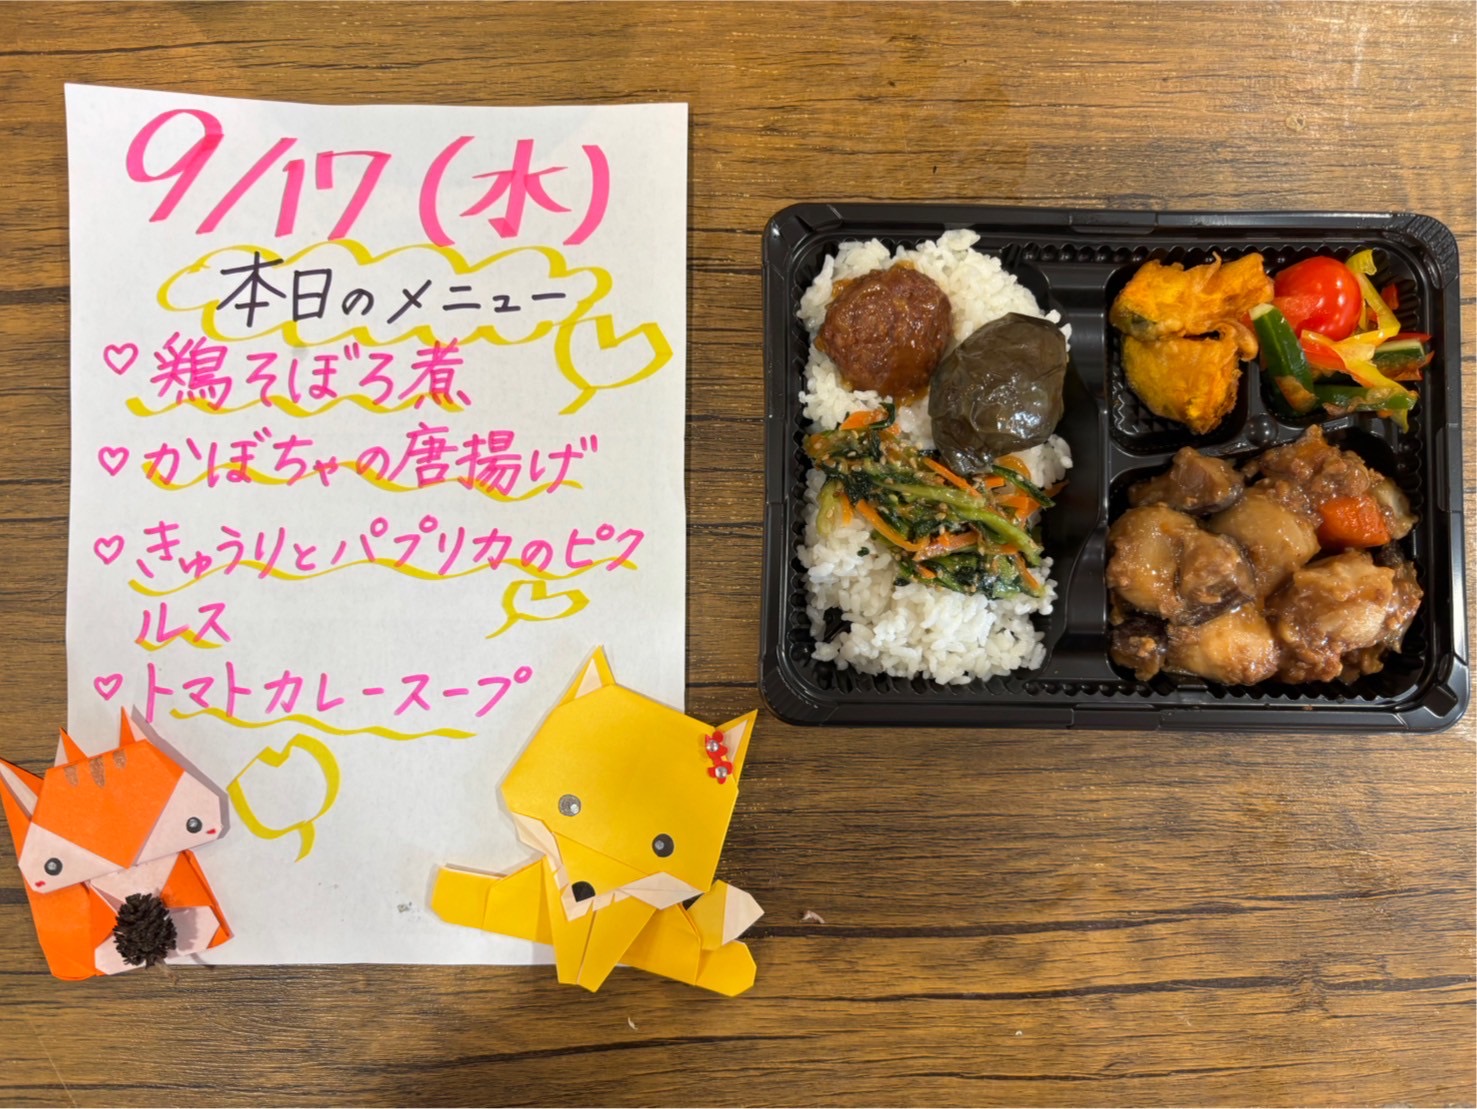 9/17(水)
本日のメニュー
♡鶏そぼろ煮
♡かぼちゃの唐揚げ
♡きゅうりとパプリカのピク
ルス
♡トマトカレースープ